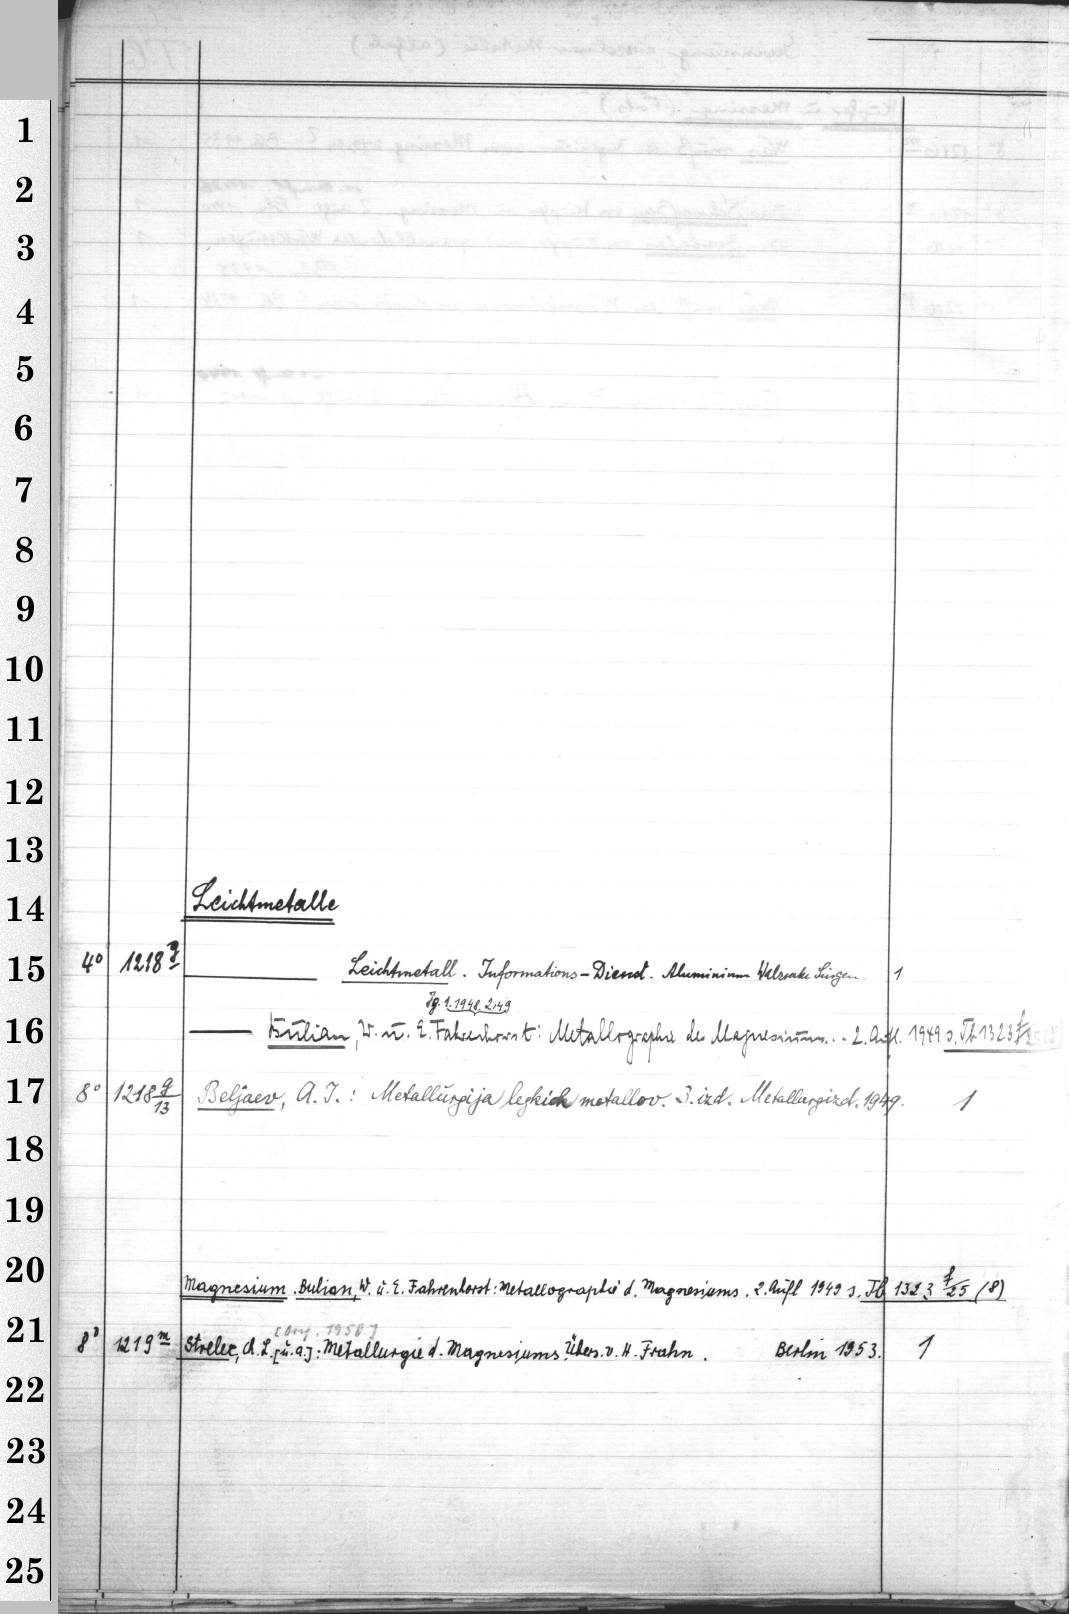 1
2
3
4
5
6
7
8
9
10
11
12
13
14 Leichtmetalle
15 4° 1218 g Leichtmetall. Informations-Dienst. Aluminium Walzwerke Singen 1
Jg. 1.1948, 2.49
16 Bulian, W. u. E. Fahrenhorst: Metallographie des Magnesiums. - 2. Aufl. 1949 s. Th 1323 f/25
17 8° 1218 g/13 Beljaev, A. I.: Metallurgija legkich metallov. 3. izd. Metallurgizd. 1949. 1
18
19
20 Magnesium Bulian, W. u. E. Fahrenhorst: Metallographie d. Magnesiums. 2. Aufl 1949 s. Th 1323 f/25 (8)
[Orig. 1950]
21 8° 1219 m Strelec, Ch. L. [u. a.]: Metallurgie d. Magnesiums. Übers. v. H. Frahn. Berlin 1953. 1
22
23
24
25